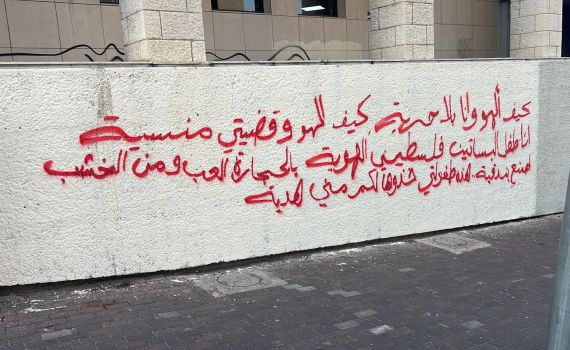 كيف ألهو وانا بلا حرية كيف الهو وقضيتي منسية
انا طفل البساتين فلسطيني الهوية بالحجارة العب ومن الخشب
اصنع بندقية. هذه طفولتي خذوها لكم مني هدية